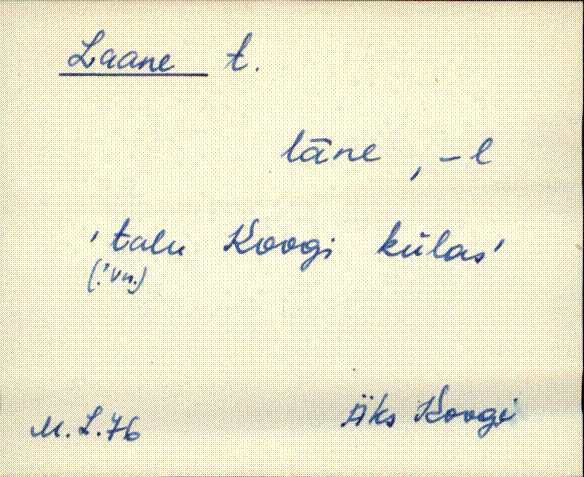 Laane t.
lāne, -l
'talu Koogi külas'
(!vn.)
M. L. 76 Äks Koogi